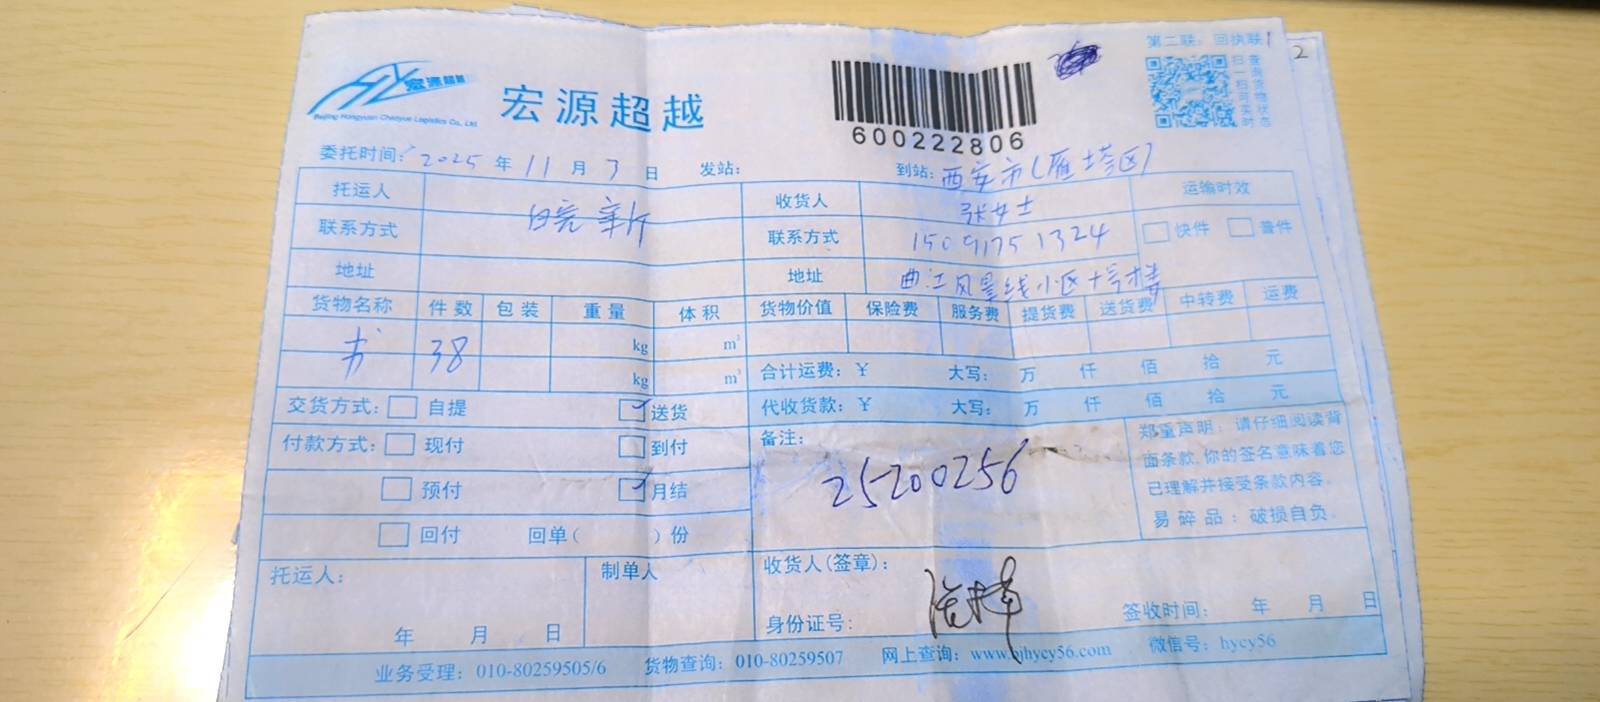 第二联：回执联
2
宏源超越
Beijing Hongyuan Chaoyue Logistics Co., Ltd.
宏源超越
600222806
扫一扫可实时
查询货物状态
委托时间：2025 年 11 月 3 日 发站： 到站：西安市(雁塔区)
托运人 收货人 张女士 运输时效
联系方式 联系方式 15091751324 快件 普件
地址 地址 曲江风景线小区十号楼
货物名称 件数 包装 重量 体积 货物价值 保险费 服务费 提货费 送货费 中转费 运费
书 38 kg m³
kg m³ 合计运费：¥ 大写： 万 仟 佰 拾 元
交货方式： 自提 送货 代收货款：¥ 大写： 万 仟 佰 拾 元
付款方式： 现付 到付 备注：
预付 月结 25200256
回付 回单( )份
郑重声明：请仔细阅读背
面条款,你的签名意味着您
已理解并接受条款内容。
易碎品：破损自负。
托运人： 制单人 收货人(签章)：
年 月 日 身份证号： 签收时间： 年 月 日
业务受理：010-80259505/6 货物查询：010-80259507 网上查询：www.bjhycy56.com 微信号：hycy56